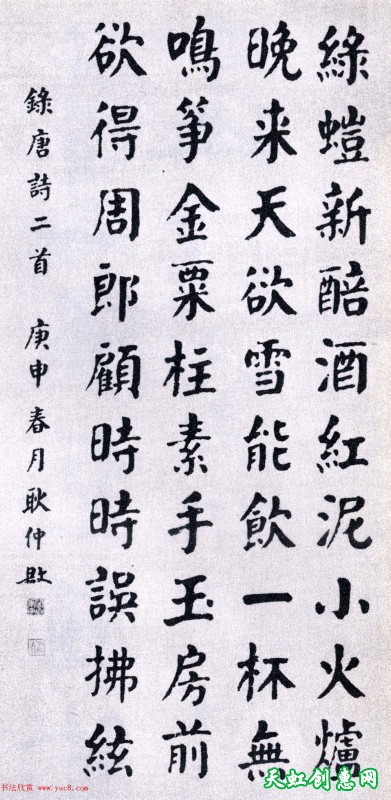 綠螘新醅酒紅泥小火爐
晚来天欲雪能飲一杯無
鳴筝金粟柱素手玉房前
欲得周郎顧時時誤拂絃
錄唐詩二首 庚申春月耿仲
书法欣赏 www.yac8.com
天虹创意网